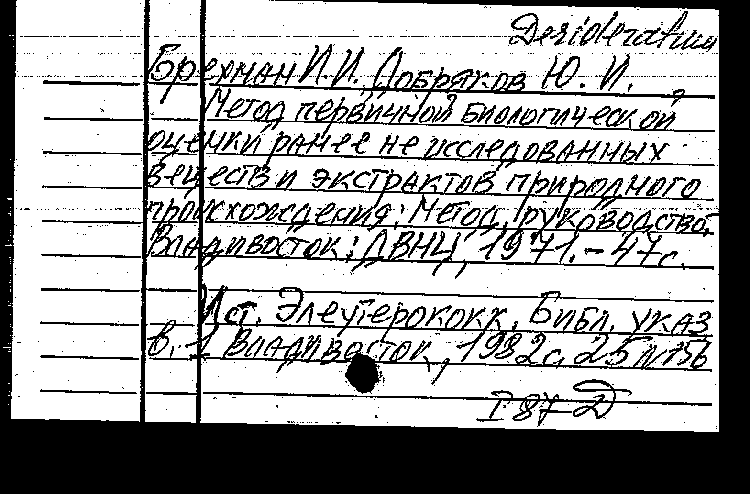 Desideratum
Брехман И.И. Добряков Ю. И.
Метод первичной биологической
оценки ранее не исследованных
веществ и экстрактов природного
происхождения: Метод. руководство.
Владивосток: ДВНЦ, 1971. – 47 с.
Ист. Элеутерококк. Библ. указ
в. 1 Владивосток, 1982 с. 25 №156
I 87 D